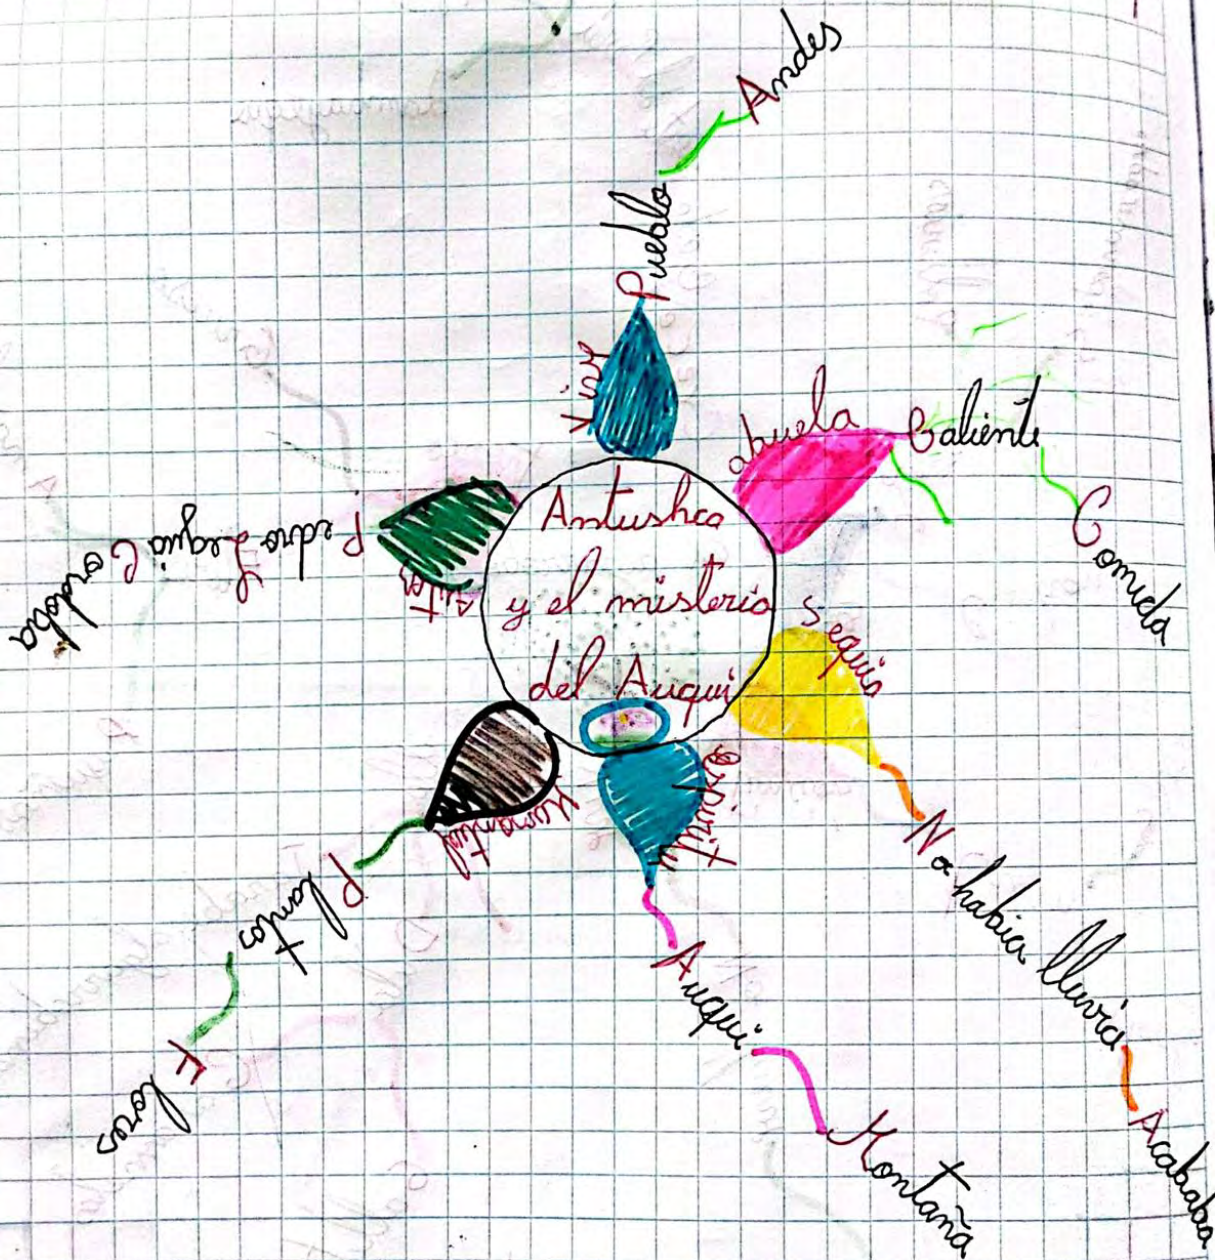 Antushca
y el misterio
del Auqui
Vivir
Pueblo
Andes
abuela
Caliente
Comida
Sequia
No habia lluvia
Acababa
Espiritu
Auqui
Montaña
Manantial
Plantas
Flores
Pedro Legua Cordoba